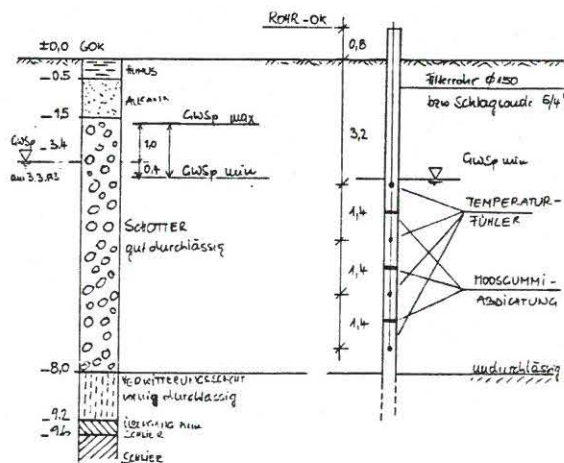 ROHR-OK
±0,0 GOK
-0,5
HUMUS
-1,5
GWSp
-3,4
GWSp max
1,0
0,4
GWSp min
SCHOTTER
gut durchlässig
-8,0
VERWITTERUNGSSCHICHT
wenig durchlässig
-9,2
ÜBERGANG ZUM
SCHLIER
-9,6
SCHLIER
0,8
Filterrohr Φ150
bzw Schlagsonde 6/4"
3,2
GWSp min
1,4
TEMPERATUR-
FÜHLER
1,4
MOOSGUMMI-
ABDICHTUNG
1,4
undurchlässig